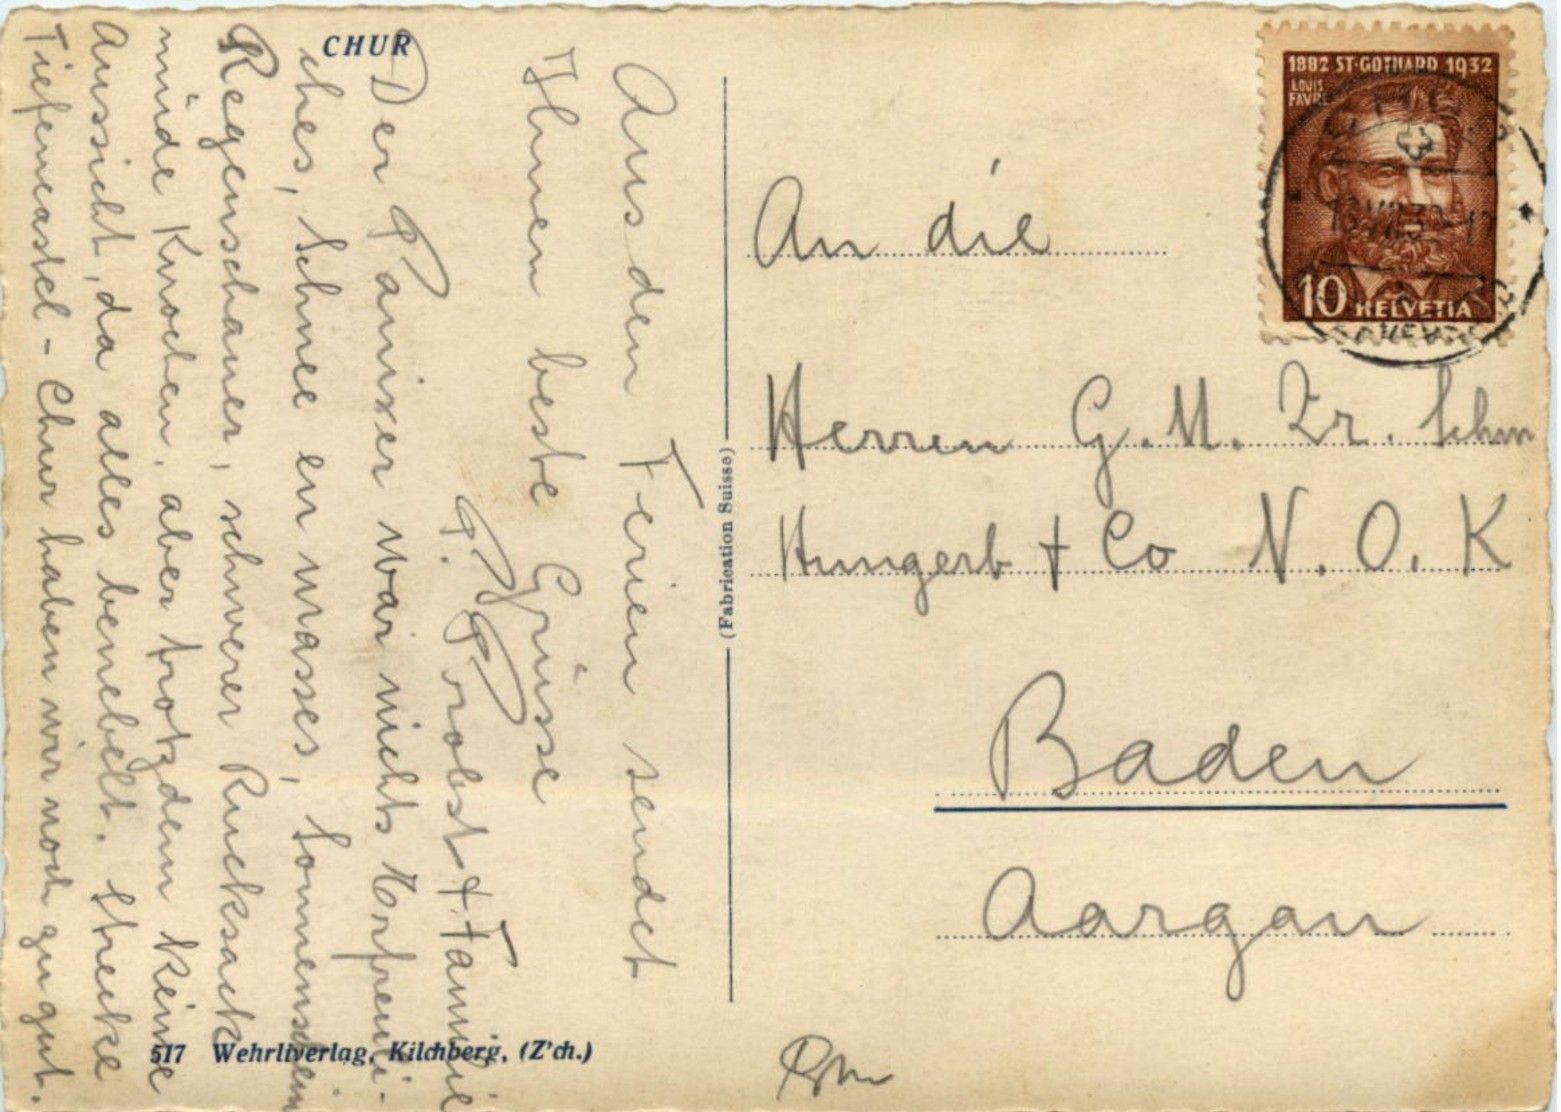 CHUR
Aus den Ferien sendet
Ihnen beste Grüsse
P. Probst + Familie
Der Panixer war nichts Erfreuli-
ches, Schnee en masses, Sonnenschein
Regenschauer, schwerer Rucksack
müde Knochen, aber trotzdem keine
Aussicht, da alles benebelt. Strecke
Tiefencastel - Chur haben wir noch zu gut.
517 Wehrliverlag, Kilchberg, (Z'ch.)
(Fabrication Suisse)
1882 ST-GOTHARD 1932
LOUIS
FAVRE
10 HELVETIA
An die
Herren G. M. Zr. Schm
Hungerb + Co N. O. K
Baden
Aargau